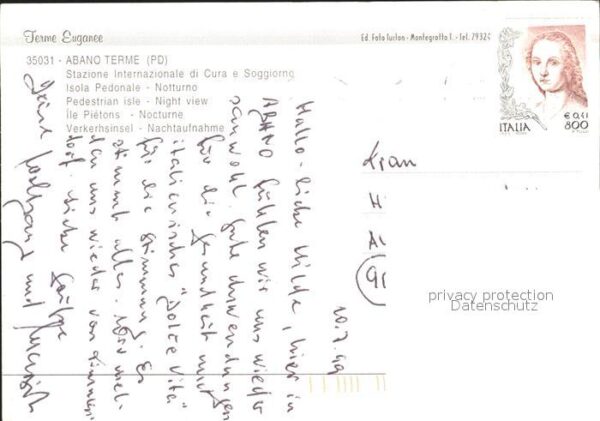 Terme Euganee
Ed. Foto Turlon - Montegrotto T. - Tel. 79324
35031 - ABANO TERME (PD)
Stazione Internazionale di Cura e Soggiorno
Isola Pedonale - Notturno
Pedestrian isle - Night view
Île Piétons - Nocturne
Verkehrsinsel - Nachtaufnahme
ITALIA
€ 0,41
800
10.7.99
Hallo liebe Hilde, hier in
ABANO fühlen wir uns wieder
sauwohl. Gute Anwendungen
für die Gesundheit und
italienisches "Dolce Vita"
für die Stimmung. Es
stimmt alles. Wir mel-
den uns wieder von
dorf. Liebe Grüße
Deine und
Frau
H
A
privacy protection
Datenschutz